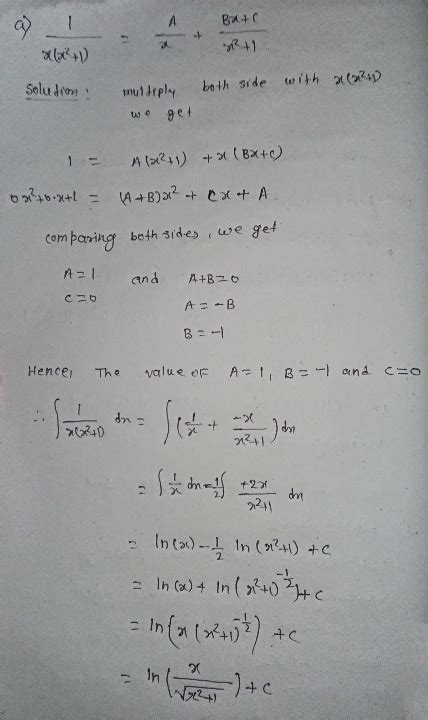 a) 1/(x(x²+1)) = A/x + (Bx+C)/(x²+1)
Solution : multiply both side with x(x²+1)
we get
1 = A(x²+1) + x(Bx+C)
0x²+0·x+1 = (A+B)x² + Cx + A
comparing both sides, we get
A=1 and A+B=0
C=0 A=-B
B=-1
Hence, The value of A=1, B=-1 and C=0
∴ ∫ 1/(x(x²+1)) dx = ∫ (1/x + (-x)/(x²+1)) dx
= ∫ 1/x dx - 1/2 ∫ (+2x)/(x²+1) dx
= ln(x) - 1/2 ln(x²+1) + C
= ln(x) + ln(x²+1)^(-1/2) + C
= ln{x(x²+1)^(-1/2)) + C
= ln(x/√(x²+1)) + C